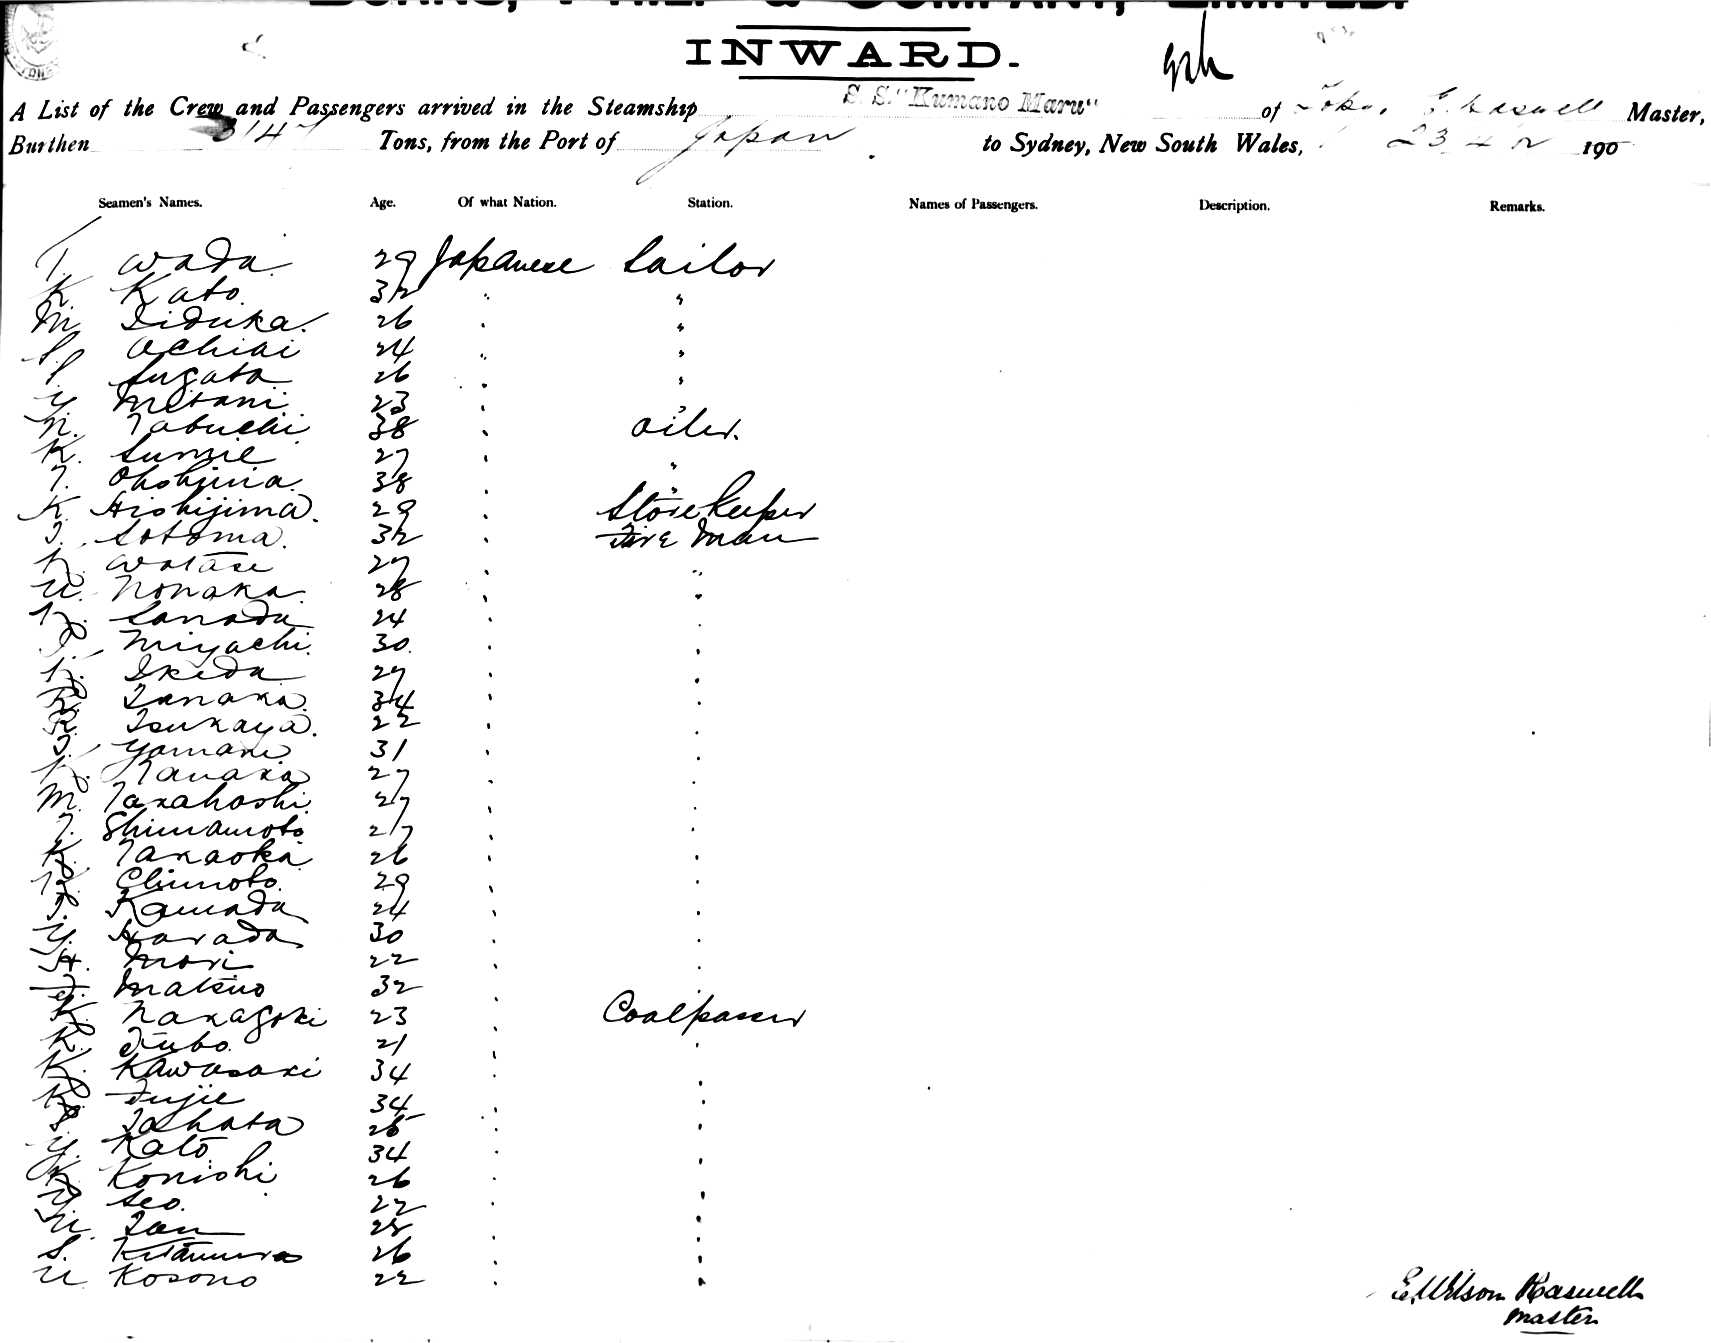 BURNS, PHILP & COMPANY, LIMITED.
INWARD.
A List of the Crew and Passengers arrived in the Steamship S. S. "Kumano Maru" of Tokio, E. Haswell Master,
Burthen 3147 Tons, from the Port of Japan to Sydney, New South Wales, 23 4 190
Seamen's Names. Age. Of what Nation. Station. Names of Passengers. Description. Remarks.
T. Wada 29 Japanese Sailor
K. Kato 32 " "
M. Iiduka 26 " "
S. Ochiai 24 " "
Sugata 26 " "
Y. Mitani 23 " "
N. Tabuchi 38 " Oiler.
K. Sumie 27 " "
T. Okshima 38 " "
K. Hishijima 29 " Store Keeper
T. Sotoma 32 " Fire Man
K. Watase 27 " "
U. Nonaka 28 " "
Sanada 24 " "
Miyachi 30 " "
Ikeda 27 " "
K. Tanaka 34 " "
K. Tsukaya 22 " "
T. Yamane 31 " "
Kanaka 27 " "
M. Takahashi 27 " "
T. Shimamoto 27 " "
K. Takaoka 26 " "
Chimoto 29 " "
Kamada 24 " "
Y. Harada 30 " "
H. Mori 22 " "
Matsuo 32 " "
K. Nakagoki 23 " Coalpasser
K. Kubo 21 " "
K. Kawasaki 34 " "
K. Fujie 34 " "
Tahata 25 " "
Y. Kato 34 " "
K. Konishi 26 " "
Y. Seo 22 " "
U. Tan 28 " "
S. Kitamura 26 " "
U. Kosono 22 " "
E. Wilson Haswell
Master